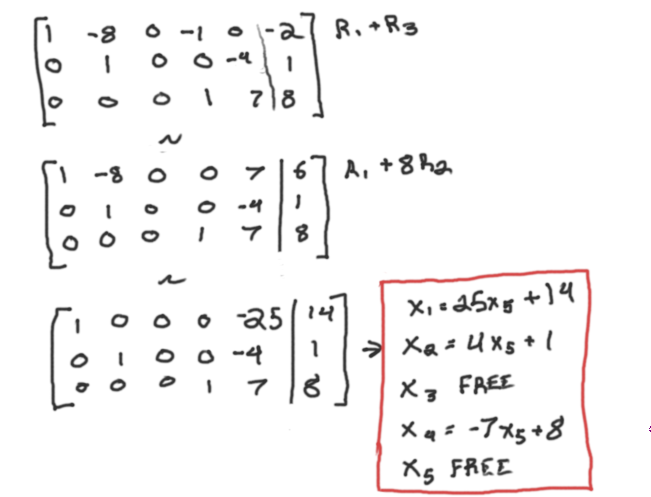 1 -8 0 -1 0 | -2 R₁ + R₃
0 1 0 0 -4 | 1
0 0 0 1 7 | 8
~
1 -8 0 0 7 | 6 R₁ + 8R₂
0 1 0 0 -4 | 1
0 0 0 1 7 | 8
~
1 0 0 0 -25 | 14
0 1 0 0 -4 | 1
0 0 0 1 7 | 8
→
x₁ = 25x₅ + 14
x₂ = 4x₅ + 1
x₃ FREE
x₄ = -7x₅ + 8
x₅ FREE